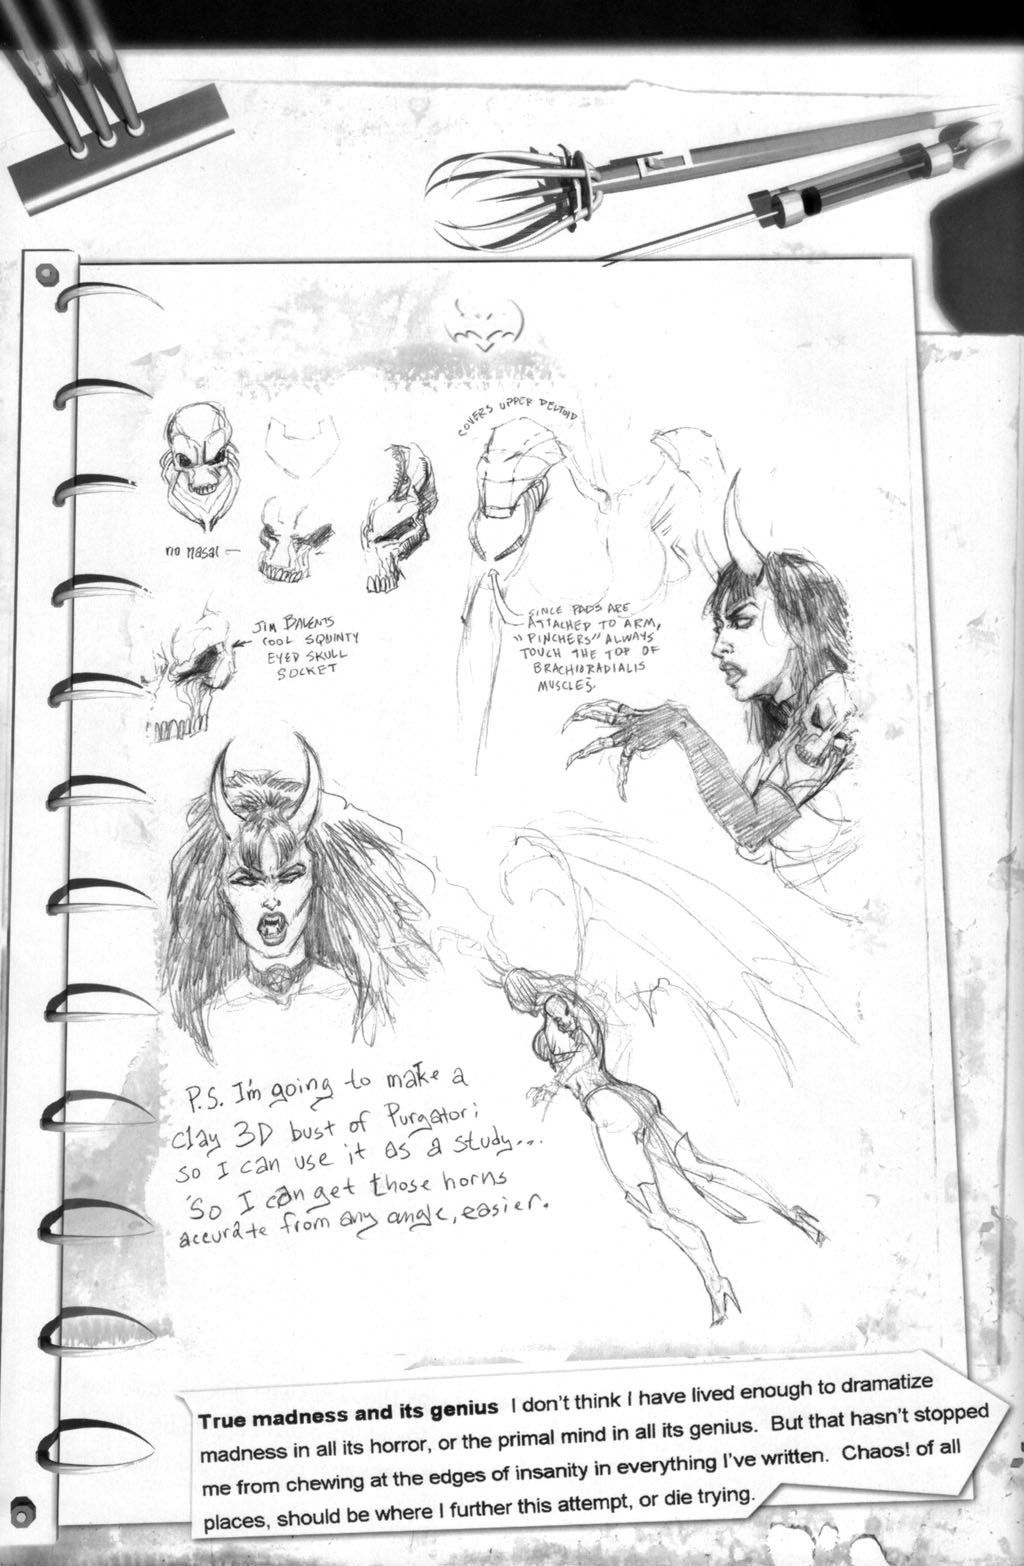 COVERS UPPER DELTOID
no nasal —
JIM BALENTS
COOL SQUINTY
EYED SKULL
SOCKET
SINCE PADS ARE
ATTACHED TO ARM,
"PINCHERS" ALWAYS
TOUCH THE TOP OF
BRACHIORADIALIS
MUSCLES.
P.S. I'm going to make a
clay 3D bust of Purgatori
so I can use it as a study...
So I can get those horns
accurate from any angle, easier.
True madness and its genius I don't think I have lived enough to dramatize
madness in all its horror, or the primal mind in all its genius. But that hasn't stopped
me from chewing at the edges of insanity in everything I've written. Chaos! of all
places, should be where I further this attempt, or die trying.